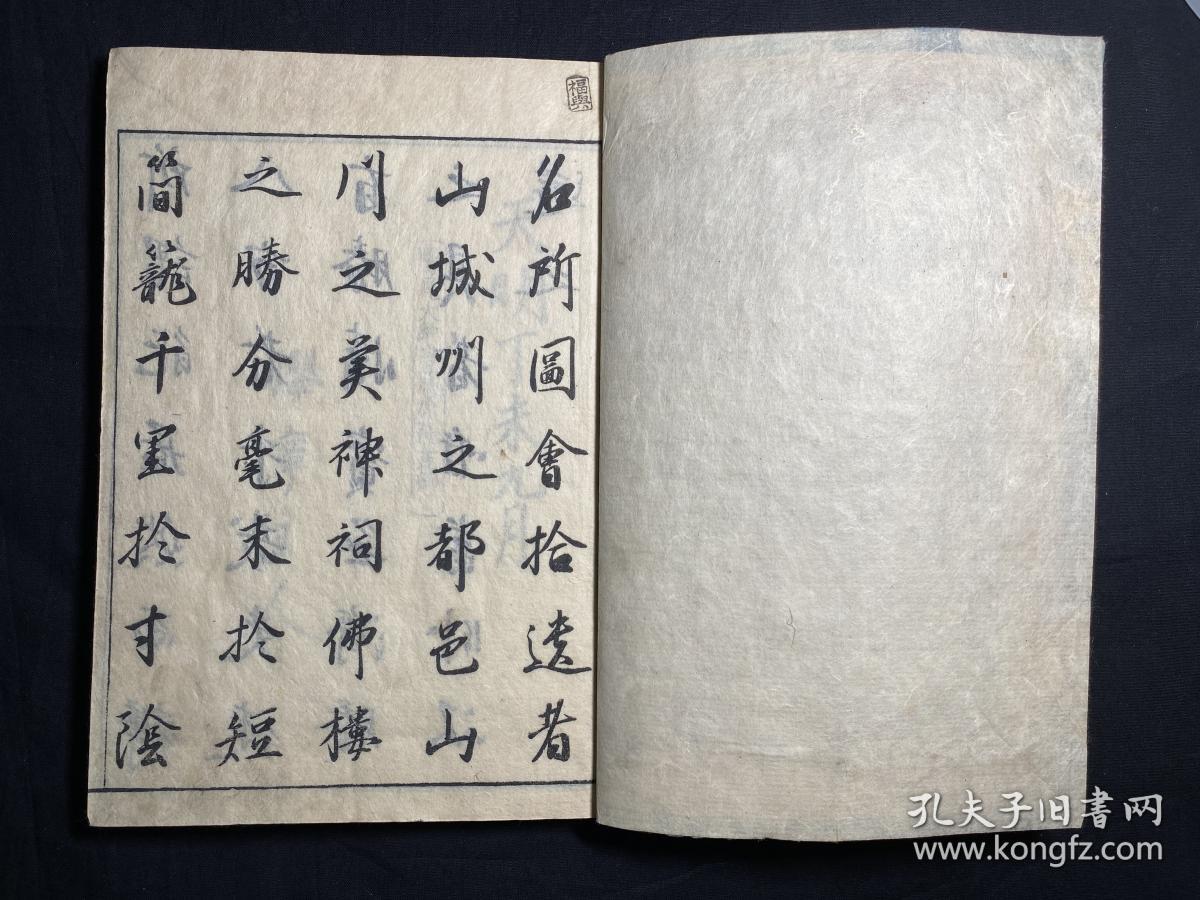 福興
名所圖會拾遺者
山城州之都邑山
川之美神祠佛樓
之勝分毫末於短
簡籠千里於寸陰
孔夫子旧书网
www.kongfz.com